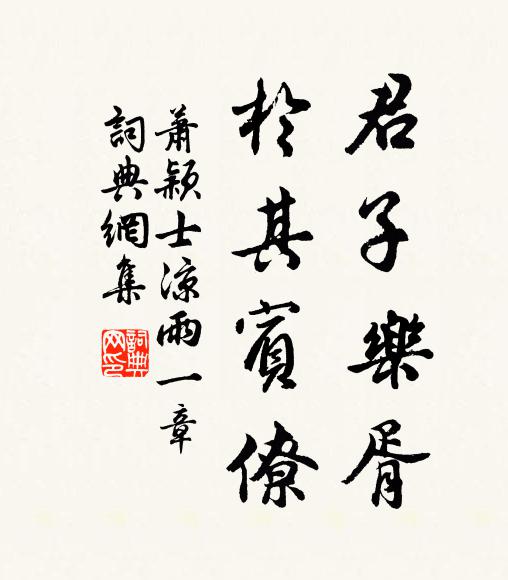 君子樂胥
於其賓僚
蕭穎士涼雨一章
詞典網集
詞典
网印